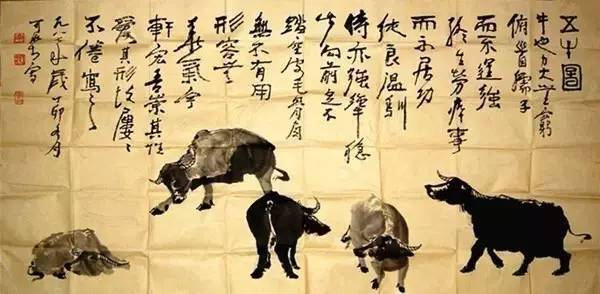 五牛圖
牛也力大無窮
俯首孺子
而不逞強
終生勞瘁事
而不居功
純良溫馴
時亦強犟穩
步向前足不
踏空皮毛骨角
無不有用
形容無
華氣宇
軒宏吾崇其性
愛其形故屢屢
不倦寫之
一九八七年歲丁卯月
可染寫